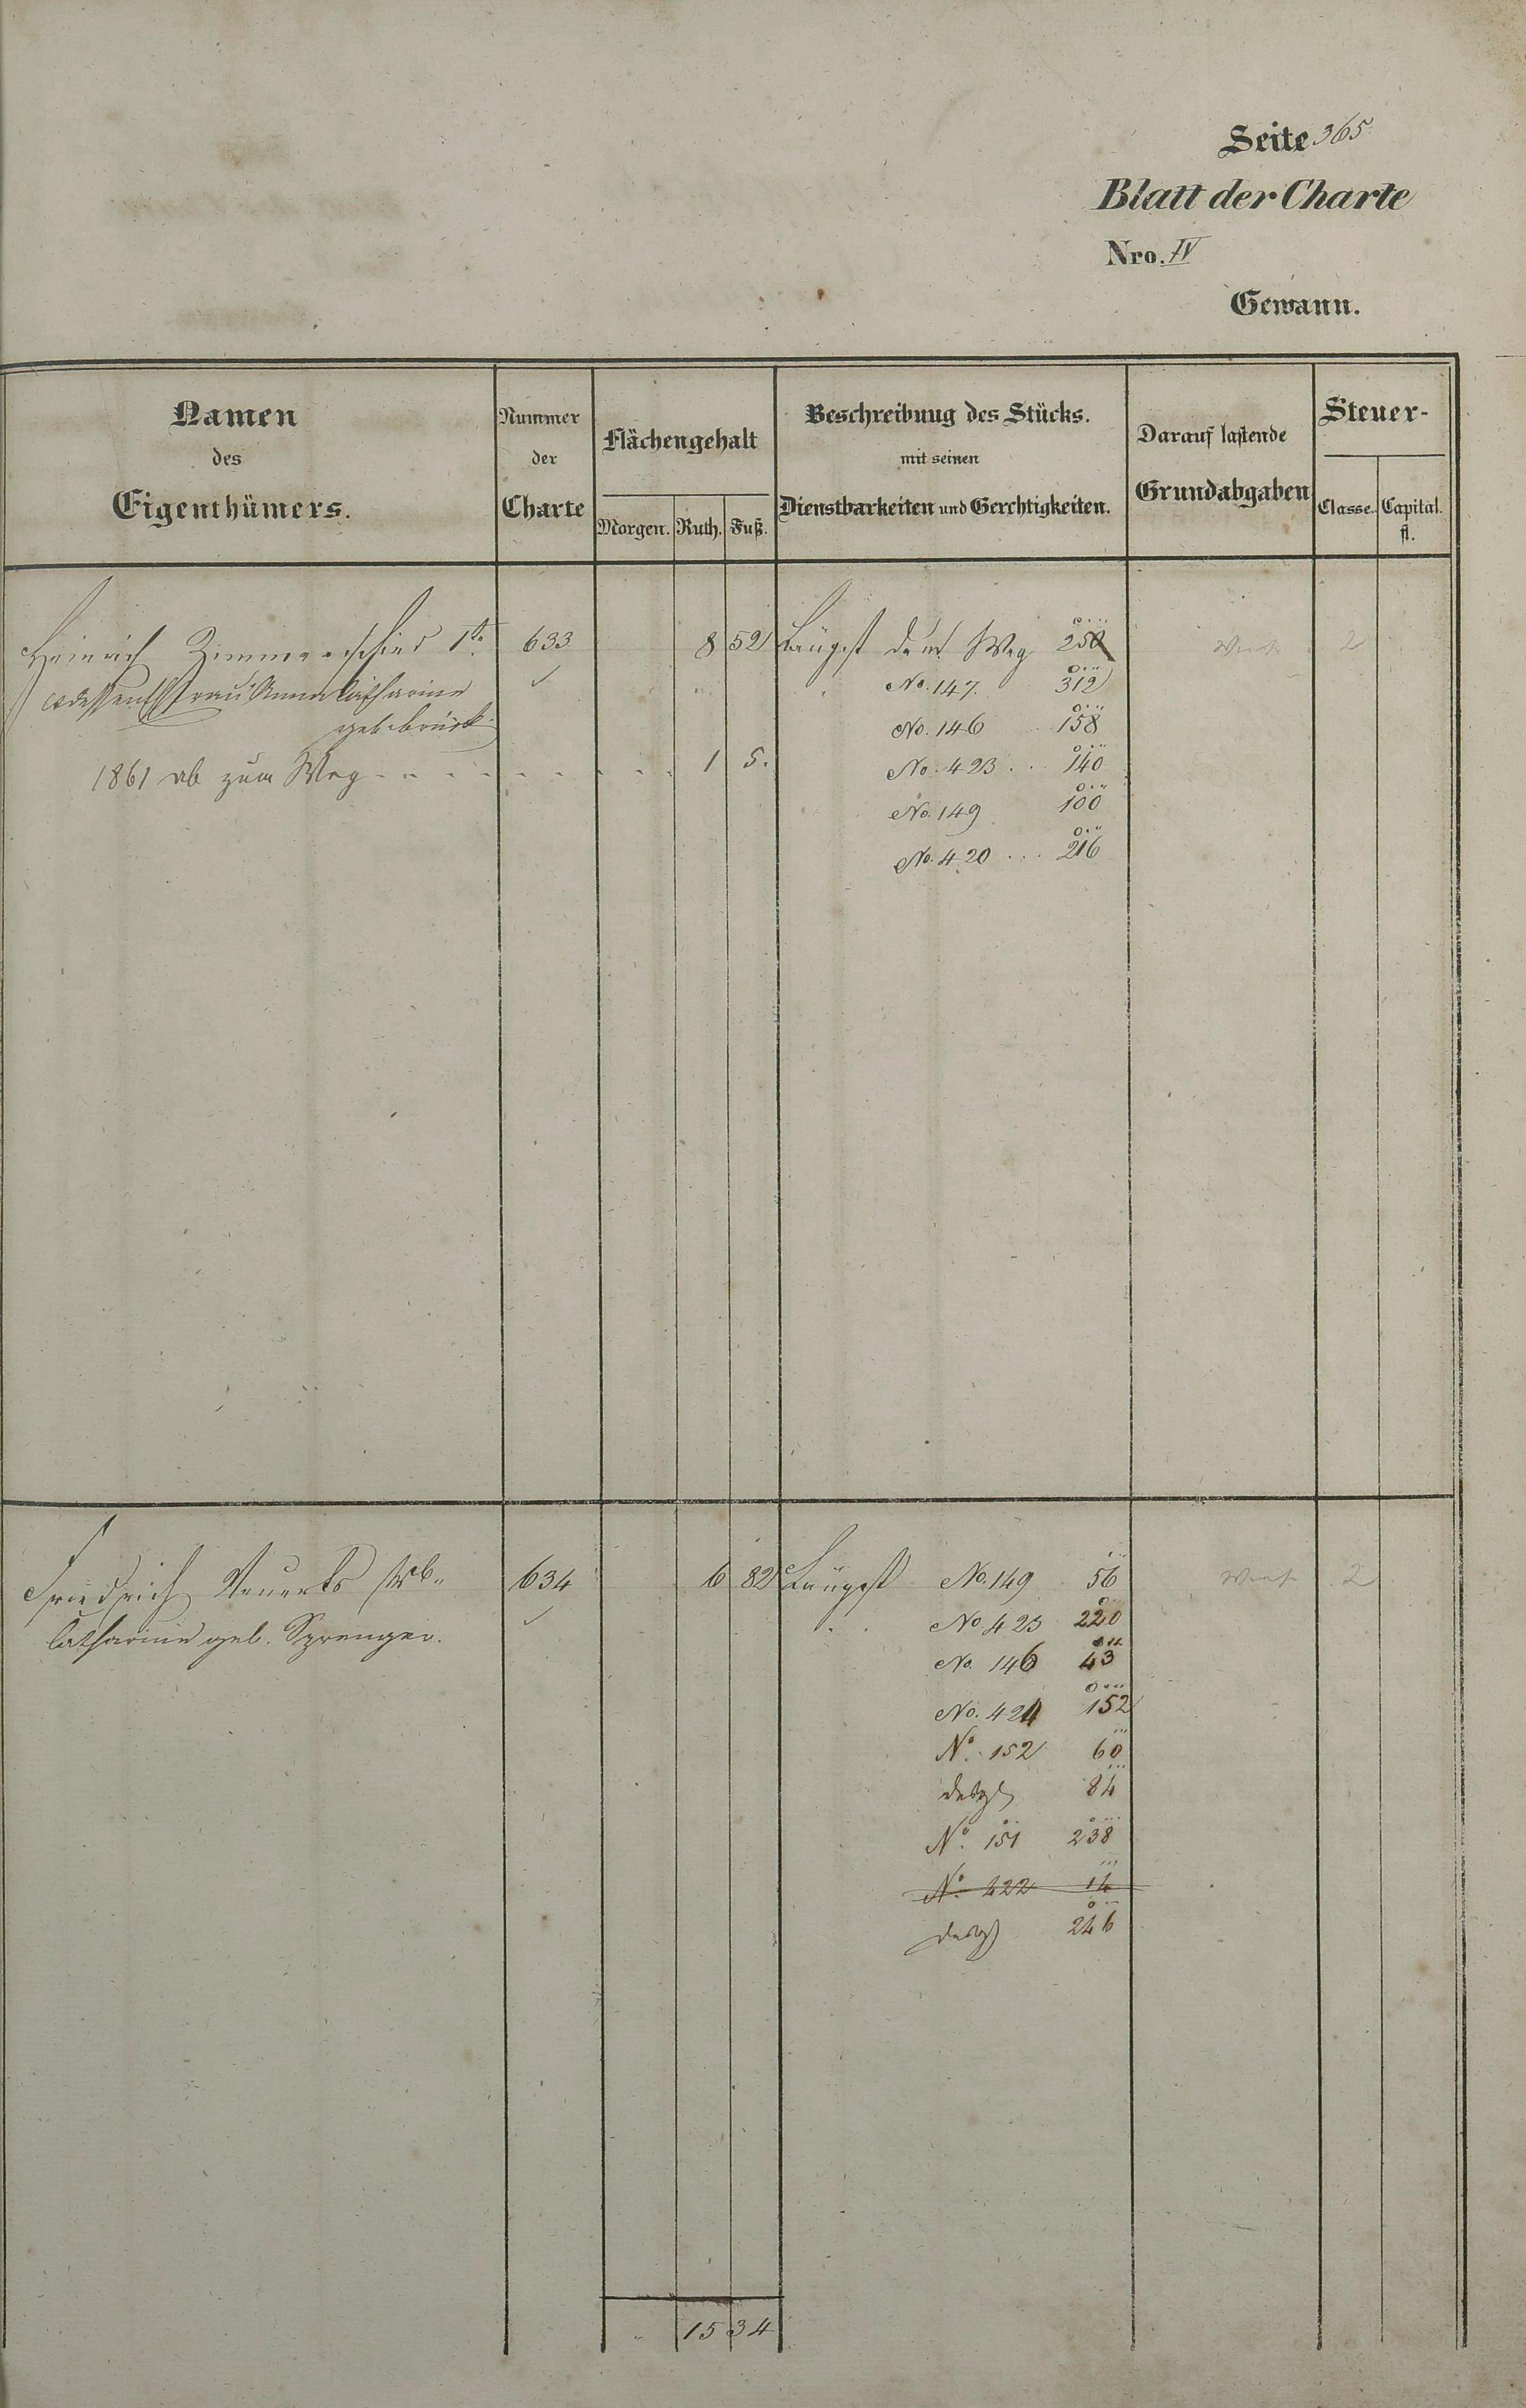 Seite 365
Blatt der Charte
Nro. IV
Gewann.
Namen des Eigenthümers.
Nummer der Charte
Flächengehalt
Morgen. Ruth. Fuß.
Beschreibung des Stücks. mit seinen Dienstbarkeiten und Gerchtigkeiten.
Darauf lastende Grundabgaben
Steuer-
Classe. Capital. fl.
Heinrich Zimmerschied 1te 633 8 52 Längst dem Weg 250 2
Frau Anna Catharine No. 147. 312
geb. No. 146 158
1861 ab zum Weg 1 5. No. 423 140
No. 149 100
No. 420 216
Friedrich 634 6 82 Längst No. 149 56 2
Catharine geb. Sprenger. No. 423 220
No. 146 43
No. 424 152
No. 152 60
desgl 84
No. 151 238
No. 422 14
desgl 246
15 34